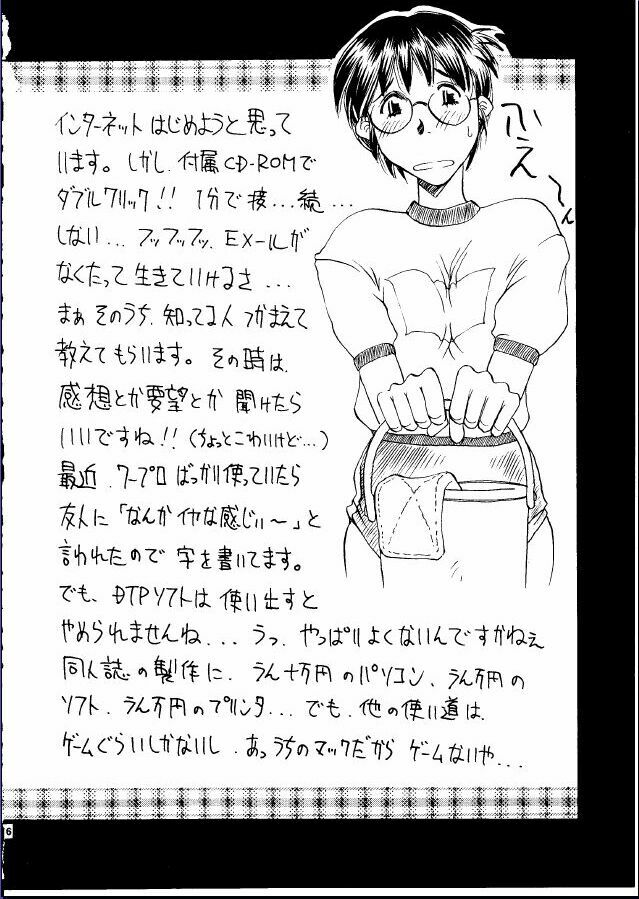 インターネットはじめようと思って
います。しかし、付属CD-ROMで
ダブルクリック!! 1分で接...続...
しない... フッフッフッ、EX-ルが
なくたって生きていけるさ...
まぁそのうち、知ってる人つかまえて
教えてもらいます。その時は、
感想とか要望とか 聞けたら
いいですね!! (ちょっとこわいけど...)
最近、ワープロばっかり使っていたら
友人に「なんかイヤな感じぃ〜」と
言われたので字を書いてます。
でも、DTPソフトは使い出すと
やめられませんね... うっ、やっぱりよくないんですかねぇ
同人誌の製作に、うん十万円のパソコン、うん万円の
ソフト、うん万円のプリンタ... でも、他の使い道は
ゲームぐらいしかないし、あっうちのマックだから ゲームないや...
ふえ〜ん
6